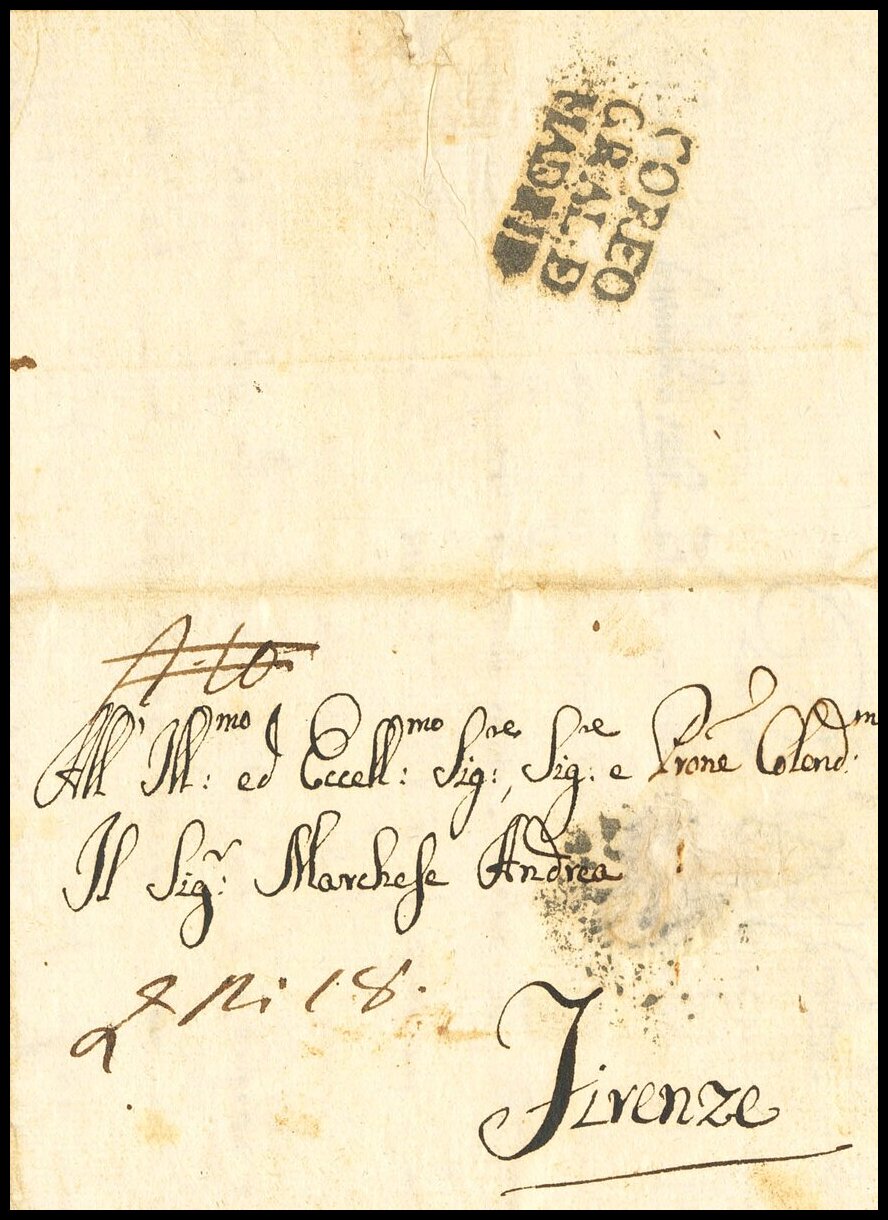 COREO
GRAL D
MADRI
All' Ill:mo ed Eccell:mo Sig:re, Sig:re e Prone Colend:m
Il Sigr: Marchese Andrea
18.
Firenze